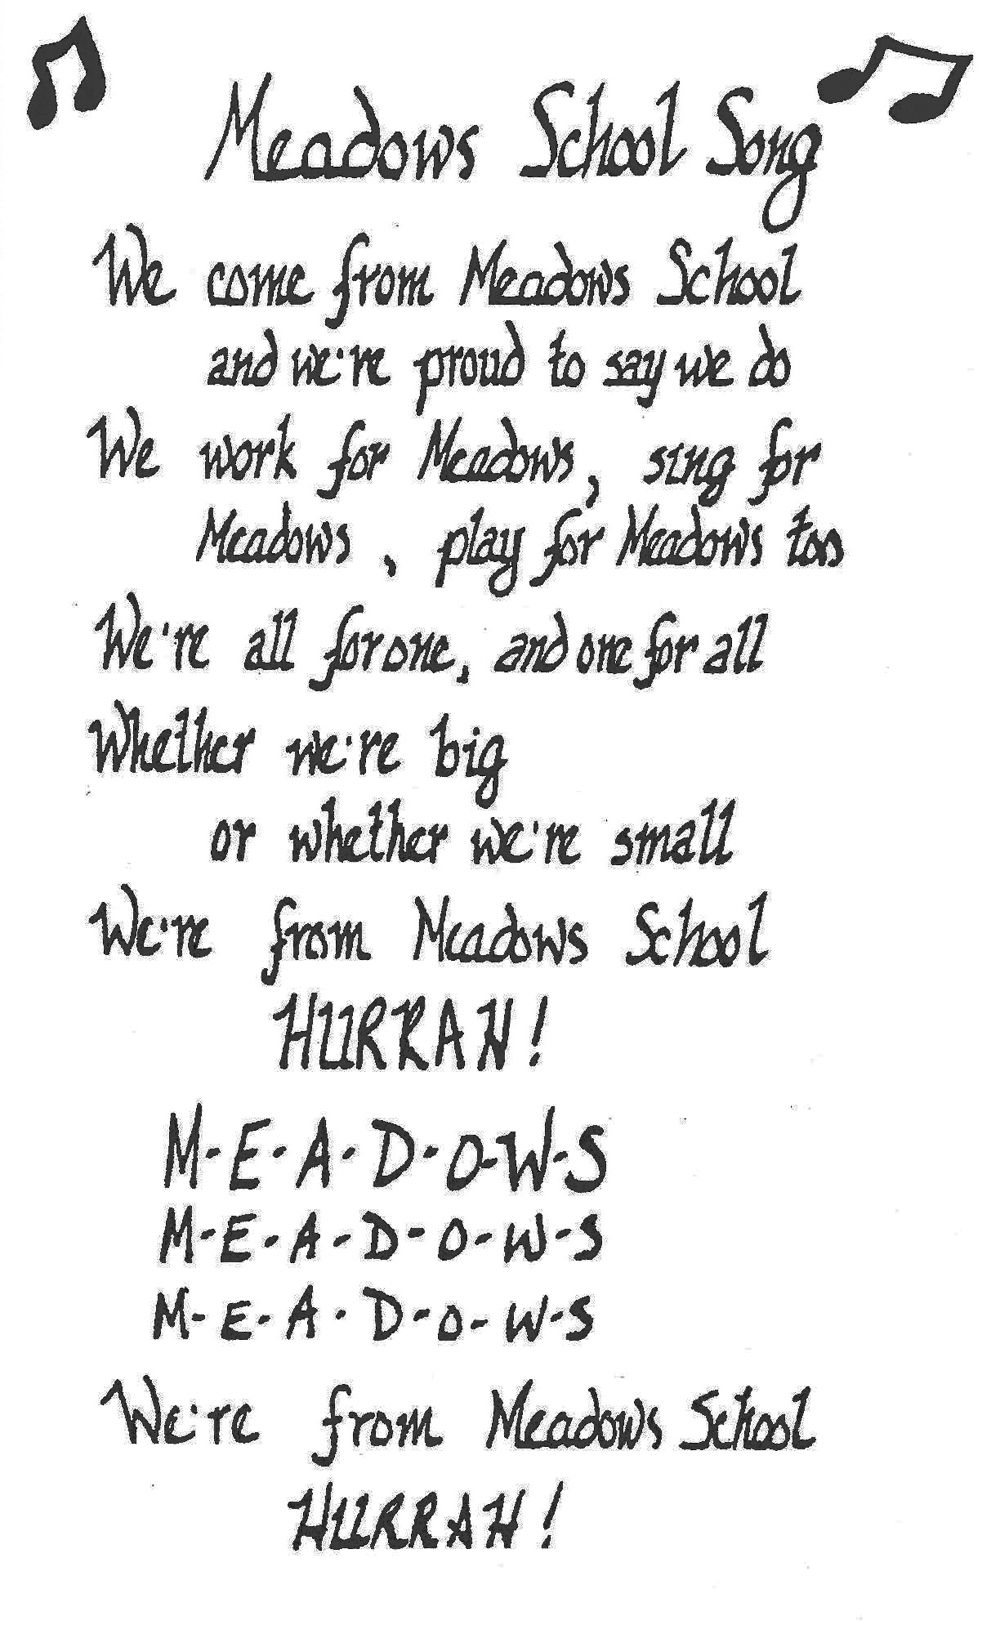 Meadows School Song
We come from Meadows School
and we're proud to say we do
We work for Meadows, sing for
Meadows, play for Meadows too
We're all for one, and one for all
Whether we're big
or whether we're small
We're from Meadows School
HURRAH!
M-E-A-D-O-W-S
M-E-A-D-O-W-S
M-E-A-D-O-W-S
We're from Meadows School
HURRAH!